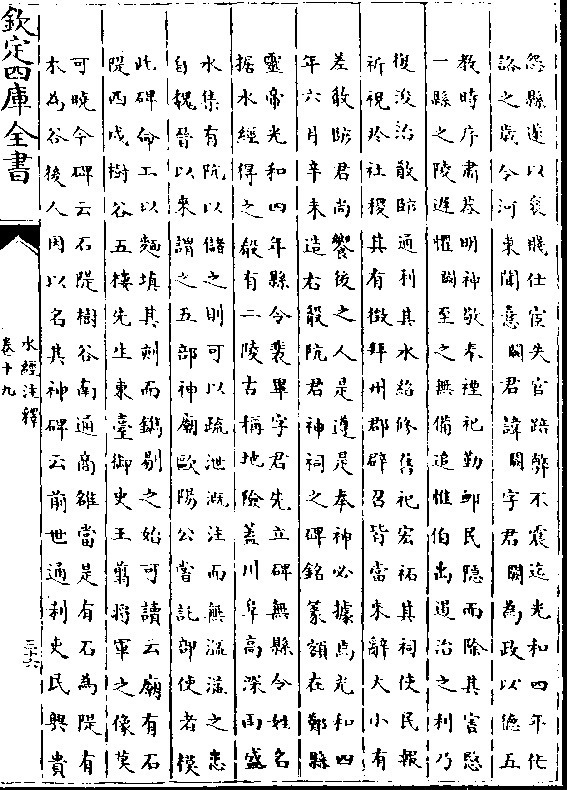 怨縣遂以衰賤仕宦失官踣弊不震迄光和四年作
詻之歲令河東聞憙闕君諱闕字君闕為政以德五
教時序肅恭明神敬奉禋祀勤䘏民隠而除其害愍
一縣之陵遲懼闕至之無備追惟伯禹道治之利乃
復浚治敢防通利其水緒修舊祀宏祐其祠使民報
祈祝於社稷其有徴拜州郡辟召皆當來辭大小有
差敢防君尚饗後之人是遵是奉神必據焉光和四
年六月辛未造右殽阬君神祠之碑銘篆額在鄭縣
靈帝光和四年縣令裴畢字君先立碑無縣令姓名
據水經得之殽有二陵古稱地險蓋川阜高深雨盛
水集有阬以儲之則可以疏泄溉注而無溢之患
自魏晉以來謂之五部神廟歐陽公嘗託部使者模
此碑命工以麵填其刻而鐫剔之始可讀云廟有石
隄西戍樹谷五樓先生東臺御史王翦將軍之像莫
可曉今碑云石隄樹谷南通商雒當是有石為隄有
木為谷後人因以名其神碑云前世通利吏民興貴
欽定四庫全書
水經注釋
卷十九
三十六